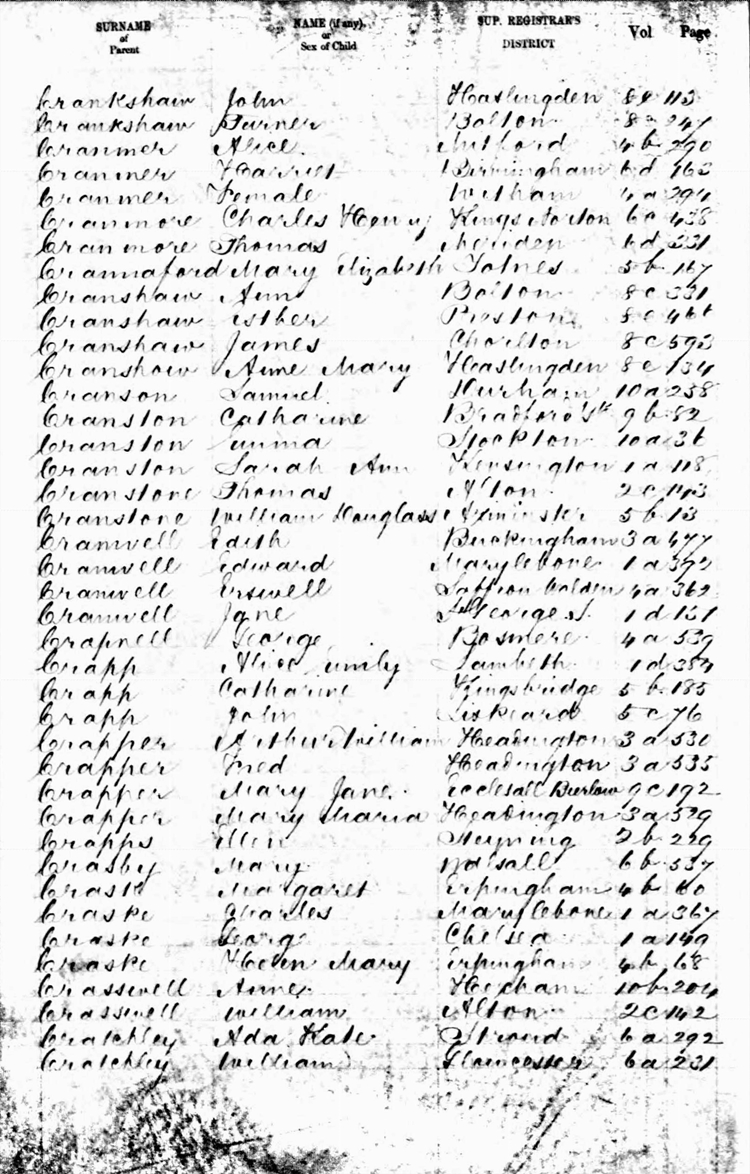 SURNAME of Parent NAME (if any) or Sex of Child SUP. REGISTRAR'S DISTRICT Vol Page
Crankshaw John Haslingden 8e 113
Crankshaw Turner Bolton 8c 247
Cranmer Alice Mitford 4b 290
Cranmer Harriet Birmingham 6d 163
Cranmer Female Witham 4a 294
Cranmore Charles Henry Kings Norton 6c 438
Cranmore Thomas Meriden 6d 331
Crannaford Mary Elizabeth Totnes 5b 167
Cranshaw Ann Bolton 8c 331
Cranshaw Esther Preston 8e
Cranshaw James Chorlton 8c 593
Cranshaw Anne Mary Haslingden 8e 134
Cranson Samuel Durham 10a 258
Cranston Catharine Bradford Yk 9b 82
Cranston Emma Stockton 10a 36
Cranston Sarah Ann Kensington 1a 118
Cranstone Thomas Alton 2c 143
Cranstone William Douglass Axminster 5b 13
Cranwell Edith Buckingham 3a 477
Cranwell Edward Marylebone 1a
Cranwell Erswell Saffron Walden 4a 362
Cranwell Jane St George S. 1d 151
Crapnell George Bosmere 4a 539
Crapp Alice Emily Lambeth 1d 384
Crapp Catharine Kingsbridge 5b 185
Crapp John Liskeard 5c 76
Crapper Arthur William Headington 3a 530
Crapper Fred Headington 3a 535
Crapper Mary Jane Ecclesall Bierlow 9c 192
Crapper Mary Maria Headington 3a 529
Crapps Ellen Steyning 2b 229
Crasby Mary Walsall 6b 537
Crask Margaret Erpingham 4b 60
Craske Charles Marylebone 1a 367
Craske George Chelsea 1a 149
Craske Helen Mary Erpingham 4b 68
Crasswell Anne Hexham 10b 204
Crasswell William Alton 2c 142
Cratchley Ada Kate Stroud 6a 292
Cratchley William Gloucester 6a 231